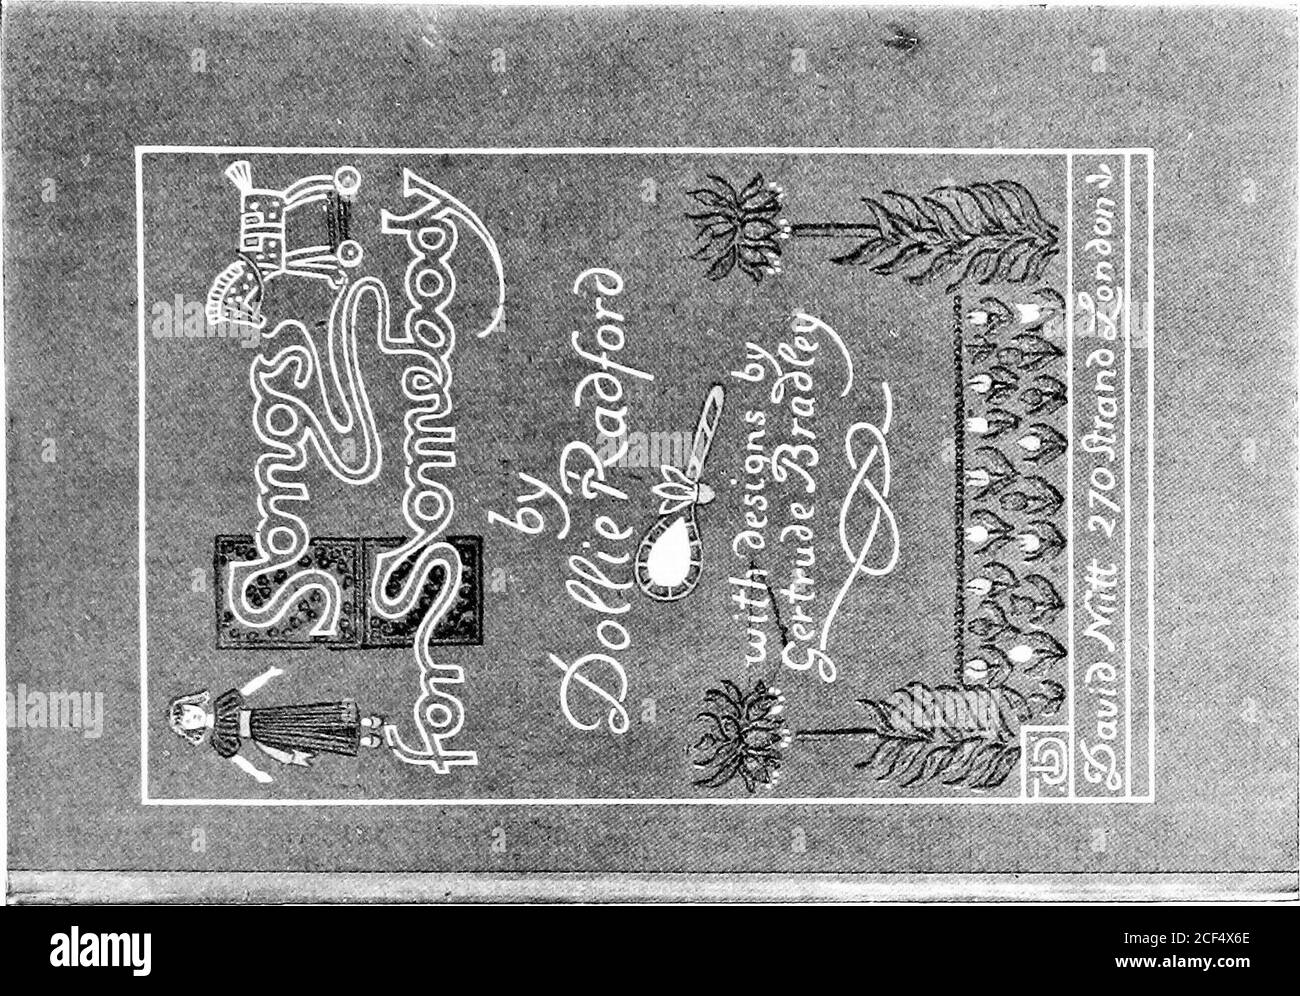 Songs
for Somebody
by
Dollie Radford
with designs by
Gertrude Bradley
David Nutt 270 Strand London
alamy
Image ID: 2CF4X6E
www.alamy.com